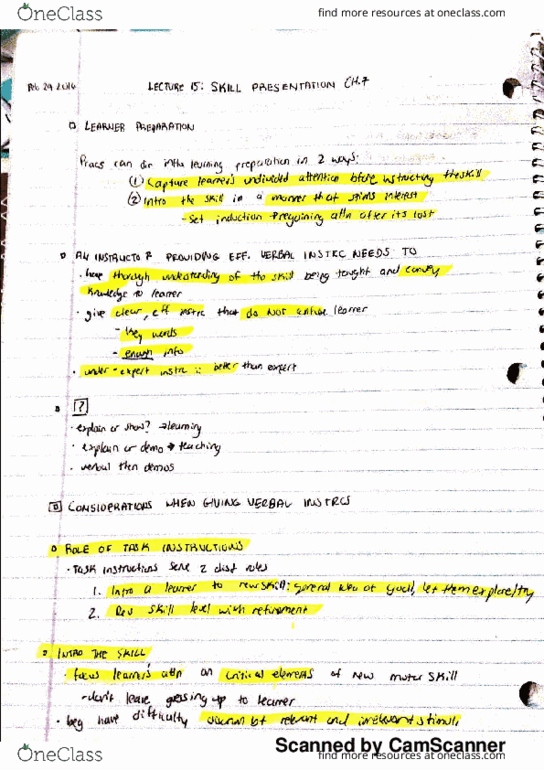 OneClass
find more resources at oneclass.com
Feb 29 2016
LECTURE 15: SKILL PRESENTATION CH.7
LEARNER PREPARATION
Pracs can learning preparation in 2 ways:
(1) Capture learner's undivided attention before instructing the skill
(2) Intro the skill in a manner that stims interest
- Set induction regaining attn after its lost
AN INSTRUCTOR PROVIDING EFF. VERBAL INSTRC NEEDS TO
· have thorough understanding of the skill being taught and convey
knowledge to learner
· give clear, eff instrc that do NOT learner
- key words
- enough info
· under-expert instrc better than expert
?
· explain or show? → learning
· explain or demo → teaching
· verbal then demos
CONSIDERATIONS WHEN GIVING VERBAL INSTRCS
ROLE OF TASK INSTRUCTIONS
· Task instructions serve 2 dist roles
1. Intro a learner to new skill: general idea of goal, let them explore/try
2. skill level with refinement
INTRO THE SKILL
· focus learner's attn on critical elements of new motor skill
- don't leave guessing up to learner
· beg have difficulty bt relevant and irrelevant stimuli
Scanned by CamScanner
OneClass
find more resources at oneclass.com